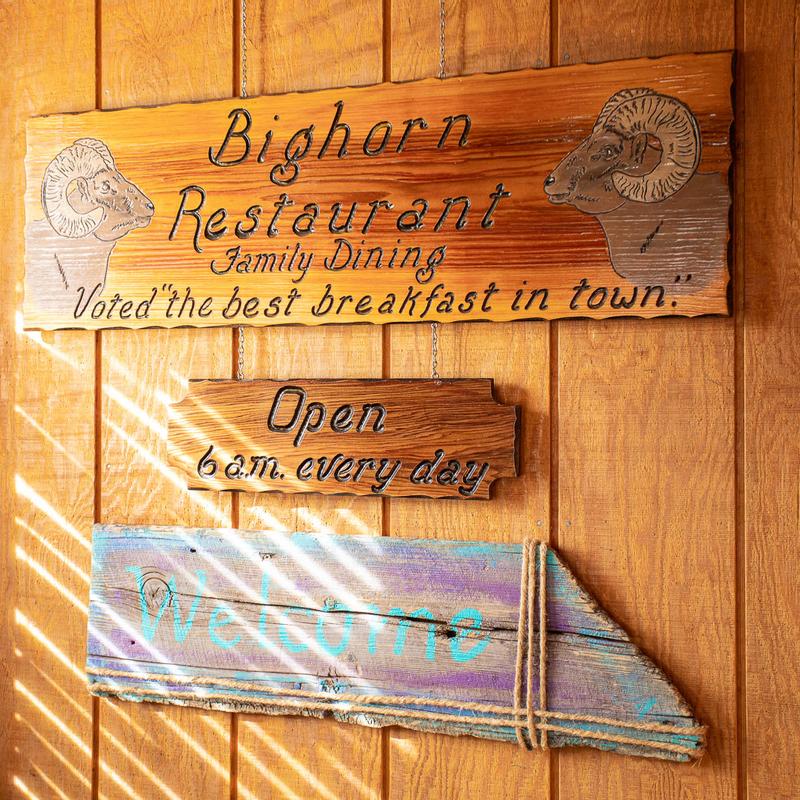 Bighorn
Restaurant
Family Dining
Voted "the best breakfast in town."
Open
6 a.m. every day
Welcome